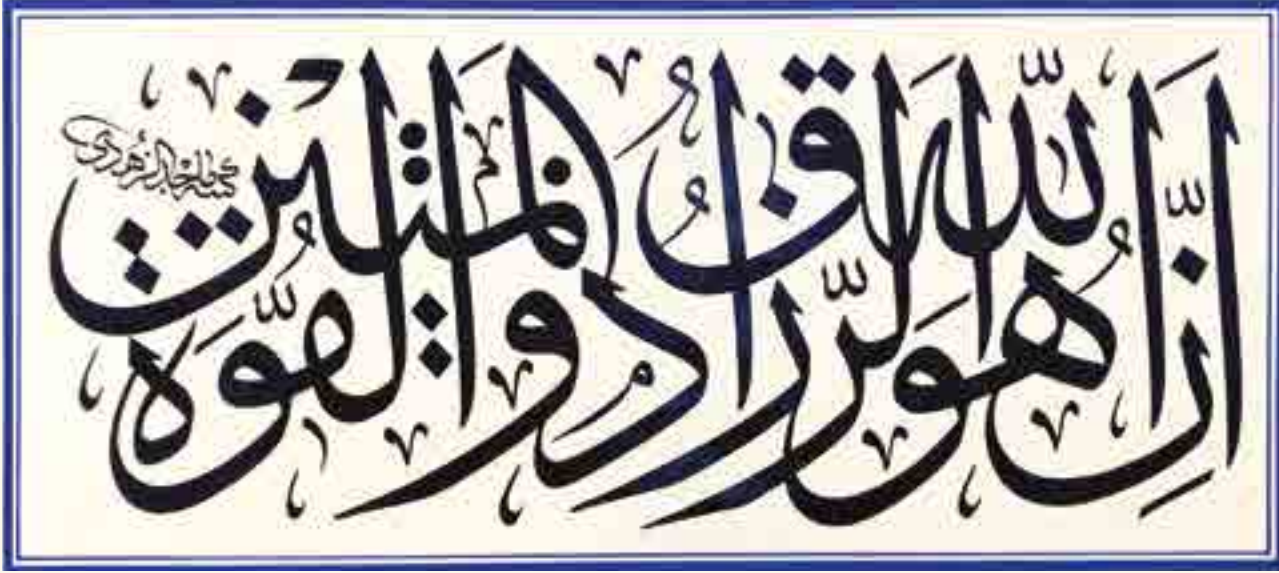 اِنَّ اللّٰهَ هُوَ الرَّزَّاقُ ذُو الْقُوَّةِ الْمَتِينُ
كتبه ماجد الزهدي